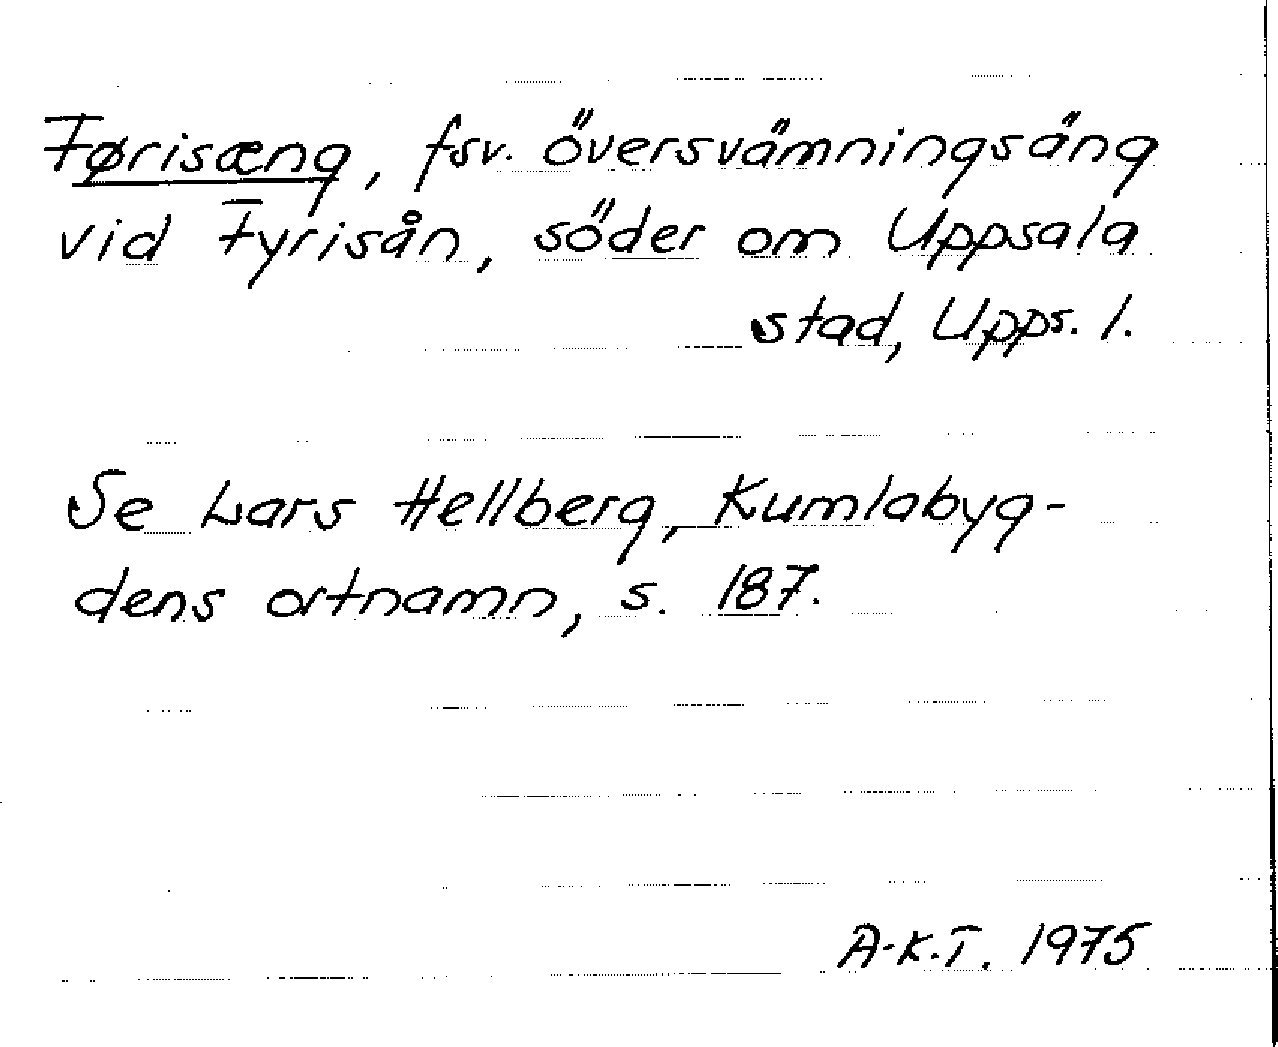 Førisæng, fsv. översvämningsäng
vid Fyrisån, söder om Uppsala
stad, Upps. l.
Se Lars Hellberg, Kumlabyg-
dens ortnamn, s. 187.
A-K.T. 1975